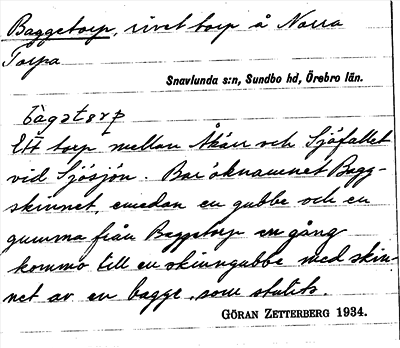 Baggetorp, rivet torp å Norra
Torpa
Snavlunda s:n, Sundbo hd, Örebro län.
bàgətorp
Ett torp mellan Åkärr och Sjöfallet
vid Sjösjön. Bar öknamnet Bagg-
skinnet, emedan en gubbe och en
gumma från Baggetorp en gång
kommo till en skinngubbe med skin-
net av en bagge, som stulits.
GÖRAN ZETTERBERG 1934.